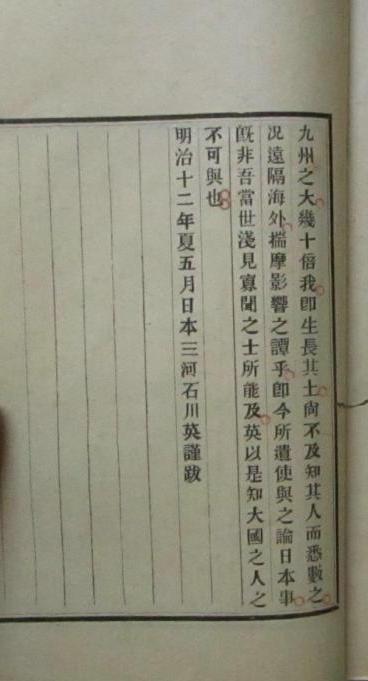 九州之大幾十倍我卽生長其土尙不及知其人而悉數之
況遠隔海外揣摩影響之譚乎卽今所遣使與之論日本事
旣非吾當世淺見寡聞之士所能及英以是知大國之人之
不可與也
明治十二年夏五月日本三河石川英謹跋